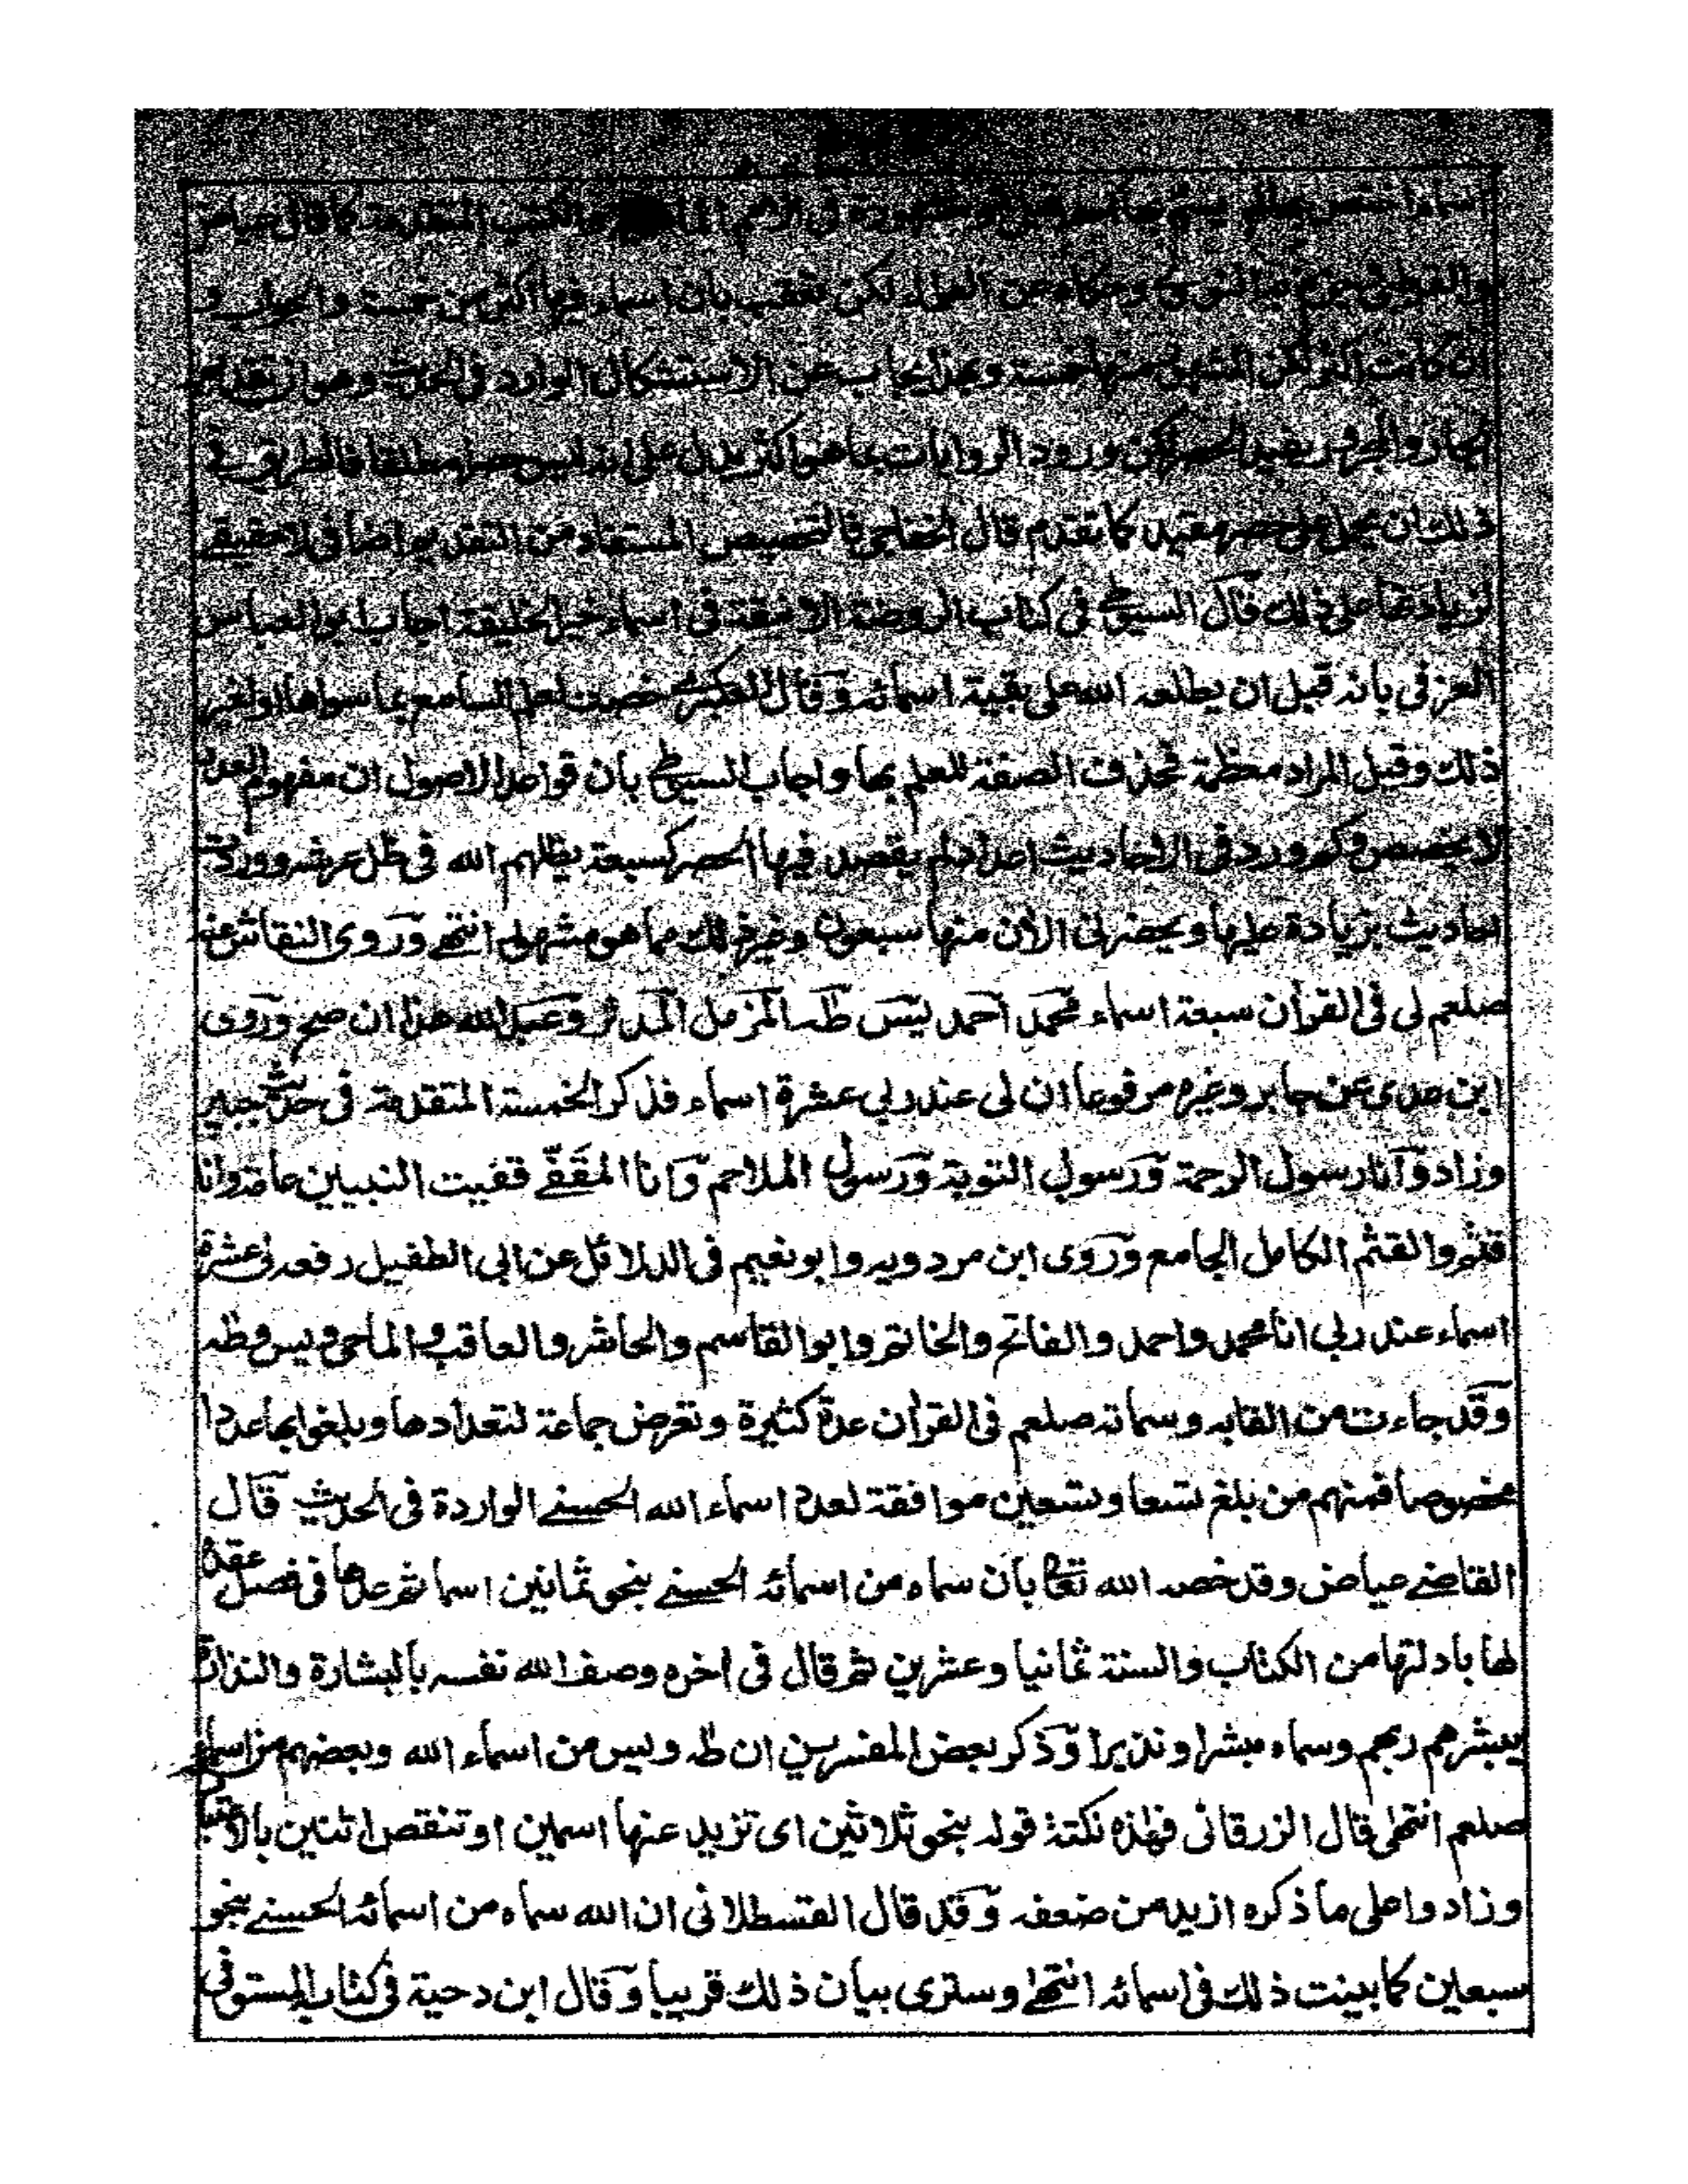 اسماء اختص بها لم يسم بها احد قبلى او مشهورة فى الامم الماضية والكتب المتقدمة كما قال عياض
والقرطبى وجزم به النووى وحكاه عن العلماء لكن تعقب بان اسماءه فيها اكثر من خمسة والجواب و
ان كانت اكثر لكن المشهور منها خمسة وبهذا يجاب عن الاستشكال الوارد فى الحديث وهو ان تقديم
الجار والمجرور يفيد الحصر لكن ورود الروايات بما هو اكثر يدل على انه ليس حصرا مطلقا فالطريق فى
ذلك ان يحمل على حصر مقيد كما تقدم قال الخفاجى فالتخصيص المستفاد من التقديم اضافى لا حقيقى
لزيادتها على ذلك قال السيوطى فى كتاب الروضة الانيقة فى اسماء خير الخليقة اجاب ابو العباس
العزفى بانه قبل ان يطلعه الله على بقية اسمائه وقال العسكرى خصت لعلم السامع بما سواها او لغير
ذلك وقيل المراد معظمة فحذفت الصفة للعلم بها واجاب السيوطى بان قواعد الاصول ان مفهوم العدد
لا يخصص وكم ورد فى الاحاديث اعداد لم يقصد فيها الحصر كسبعة يظلهم الله فى ظل عرشه ووردت
احاديث بزيادة عليها ويحضرنى الان منها سبعون وغير ذلك مما هو مشهور انتهى وروى النقاش عنه
صلعم لى فى القران سبعة اسماء محمد احمد يٰس طه المزمل المدثر وعبد الله هذا ان صح وروى
ابن عدى عن جابر وغيره مرفوعا ان لى عند ربى عشرة اسماء فذكر الخمسة المتقدمة فى حديث جبير
وزاد وانا رسول الرحمة ورسول التوبة ورسول الملاحم وانا المقفى قفيت النبيين عامة وانا
قثم والقثم الكامل الجامع وروى ابن مردويه وابو نعيم فى الدلائل عن ابى الطفيل رفعه لى عشرة
اسماء عند ربى انا محمد واحمد والفاتح والخاتم وابو القاسم والحاشر والعاقب والماحى ويس وطه
وقد جاءت من القابه وسماته صلعم فى القران عدة كثيرة وتعرض جماعة لتعدادها وبلغوا بها عددا
مخصوصا فمنهم من بلغ تسعا وتسعين موافقة لعدد اسماء الله الحسنى الواردة فى الحديث قال
القاضى عياض وقد خصه الله تعالى بان سماه من اسمائه الحسنى بنحو ثمانين اسما ثم عدها فى فصل عقده
لها بادلتها من الكتاب والسنة ثمانيا وعشرين ثم قال فى اخره وصف الله نفسه بالبشارة والنذارة
يبشرهم ربهم وسماه مبشرا ونذيرا وذكر بعض المفسرين ان طه ويس من اسماء الله وبعضهم من اسماء
صلعم انتهى قال الزرقانى فهذه نكتة قوله بنحو ثلاثين اى تزيد عنها اسمين او تنقص اثنين بالاخير
وزادوا على ما ذكره ازيد من ضعفه وقد قال القسطلانى ان الله سماه من اسمائه الحسنى بنحو
سبعين كما بينت ذلك فى اسمائه انتهى وسترى بيان ذلك قريبا وقال ابن دحية فى كتاب المستوفى